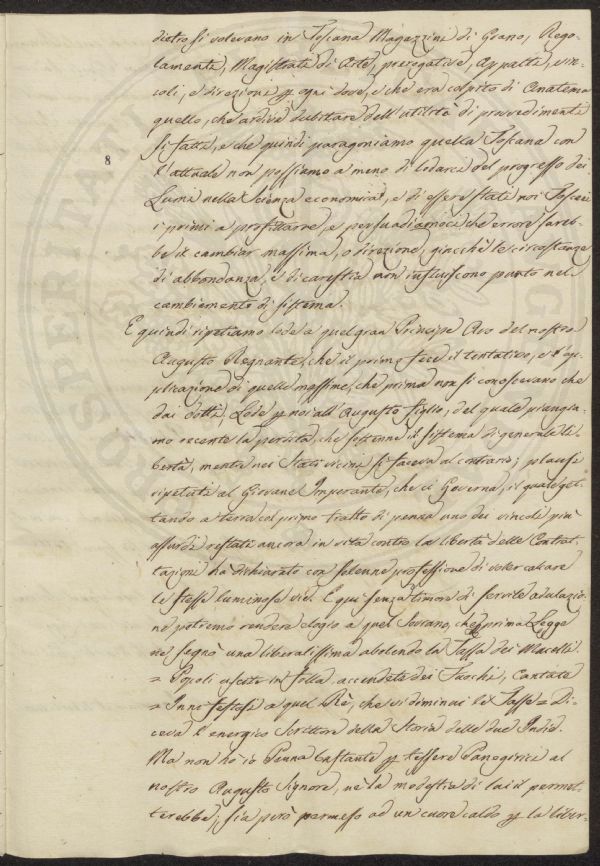 dietro si volevano in Toscana Magazzini di Grano, Rego-
lamenti, Magistrati di Arte, prerogative, Appalti, vin-
coli, e direzione p ogni dove, e che era colpito di Anatema
quello, che ardiva dubitare dell'utilità di provvedimenti
sì fatti, e che quindi paragoniamo quella Toscana con
8
l'attuale non possiamo a meno di lodarci del progresso dei
Lumi nella Scienza economica, e di essere stati noi Toscani
i primi a profittarne, e persuadiamoci che errore sareb-
be il cambiar massima, o direzione, giacchè le circostanze
di abbondanza, e di carestia non influiscono punto nel
cambiamento di sistema.
E quindi ripetiamo lode a quel gran Principe Avo del nostro
Augusto Regnante, che il primo fece il tentativo, e l'ap-
plicazione di quelle massime, che prima non si conoscevano che
dai dotti, Lode p noi all'Augusto figlio, del quale piangia-
mo recente la perdita, che sostenne il sistema di generale li-
bertà, mentre nei Stati vicini si faceva al contrario; plausi
ripetuti al Giovane Imperante, che ci Governa, il quale get-
tando a terra col primo tratto di penna uno dei vincoli più
assurdi restati ancora in vita contro la libertà delle Contrat-
tazioni ha dichiarato con solenne professione di voler calcare
le stesse luminose vie. E qui senza timore di servile adulazio-
ne potremo rendere elogio a quel Sovrano, che prima Legge
ne segnò una liberalissima abolendo la Tassa dei Macelli.
= Popoli uscite in folla, accendete dei Fuochi, Cantate
= Inni festosi a quel Rè, che vi diminuì le Tasse = Di-
ceva l'energico Scrittore della Storia delle due Indie.
Ma non ho io Penna bastante p tessere Panegirici al
nostro Augusto Signore, nè la modestia di lui il permet-
terebbe; sia però permesso ad un cuore caldo p la liber-